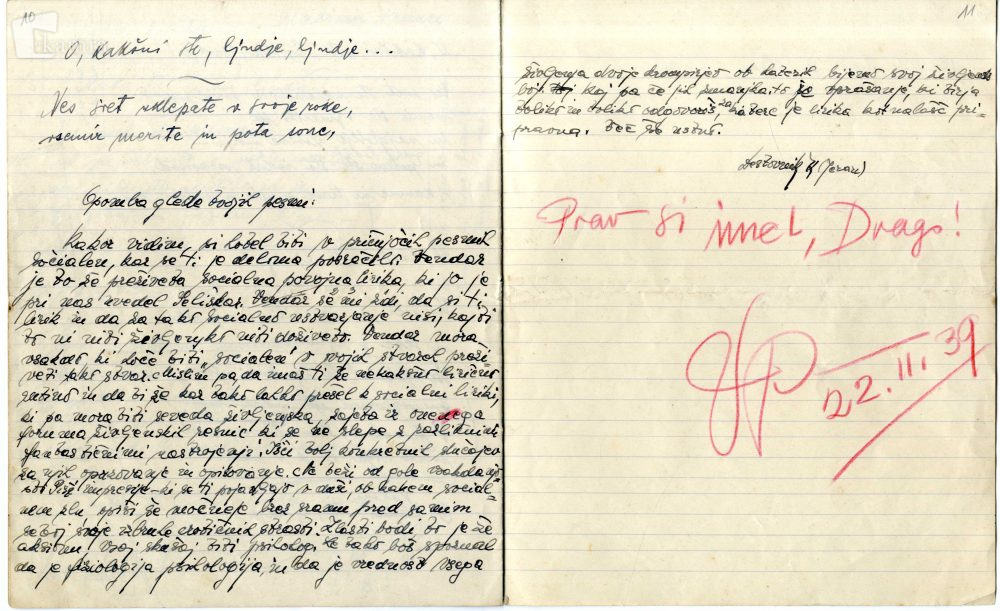 10
O, kakšni ste, ljudje, ljudje...
Ves svet sklepate v svoje roke,
vsemir merite in pota sonc,
Opomba glede tvojih pesmi:
Kakor vidim, si hotel biti v pričujočih pesmih
socialen, kar se ti je deloma posrečilo. Vendar
je to že preživeta socialna povojna lirika, ki jo je
pri nas uvedel Seliškar. Vendar se mi zdi, da si ti
lirik in da za tako socialno ustvarjanje nisi, kajti
to ni niti življenjsko niti doživeto. Vendar mora
vsakdo ki hoče biti "socialen" v svojih stvareh preži-
veti tako stvar. Mislim pa, da imaš ti že nekakšno lirično
in da bi še kar tako lahko prešel k socialni liriki,
ki pa mora biti seveda življenjska, zajeta iz onega
foruma življenskih resnic ki se ne slepe z različnimi
fantastičnimi nastrojenji. Išči bolj konkretnih slučajev
za njih opazovanje in opisovanje. Ne beži od gole vsakdanjo-
sti. Piši impresije - ki se ti pojavljajo v duši, ob kakem social-
nem zlu opiši še močneje brez sramu pred samim
seboj svoje vzbrule erotičnih strasti. Zlasti bodi to je že
aksiom, vsaj skušaj biti psiholog. Le tako boš spoznal
da je fiziologija psihologija, in da je vrednost vsega
11
življenja dvoje ob katerih biješ svoj življenski
boj. kaj pa če jih zmanjkajo še vprašanje, bi
toliko in toliko odgovoriš, katere je lirika kot nalašč pri-
pravna. Več še ustno.
Destovnik K (Jeran)
Prav si imel, Drago!
22. II. 39